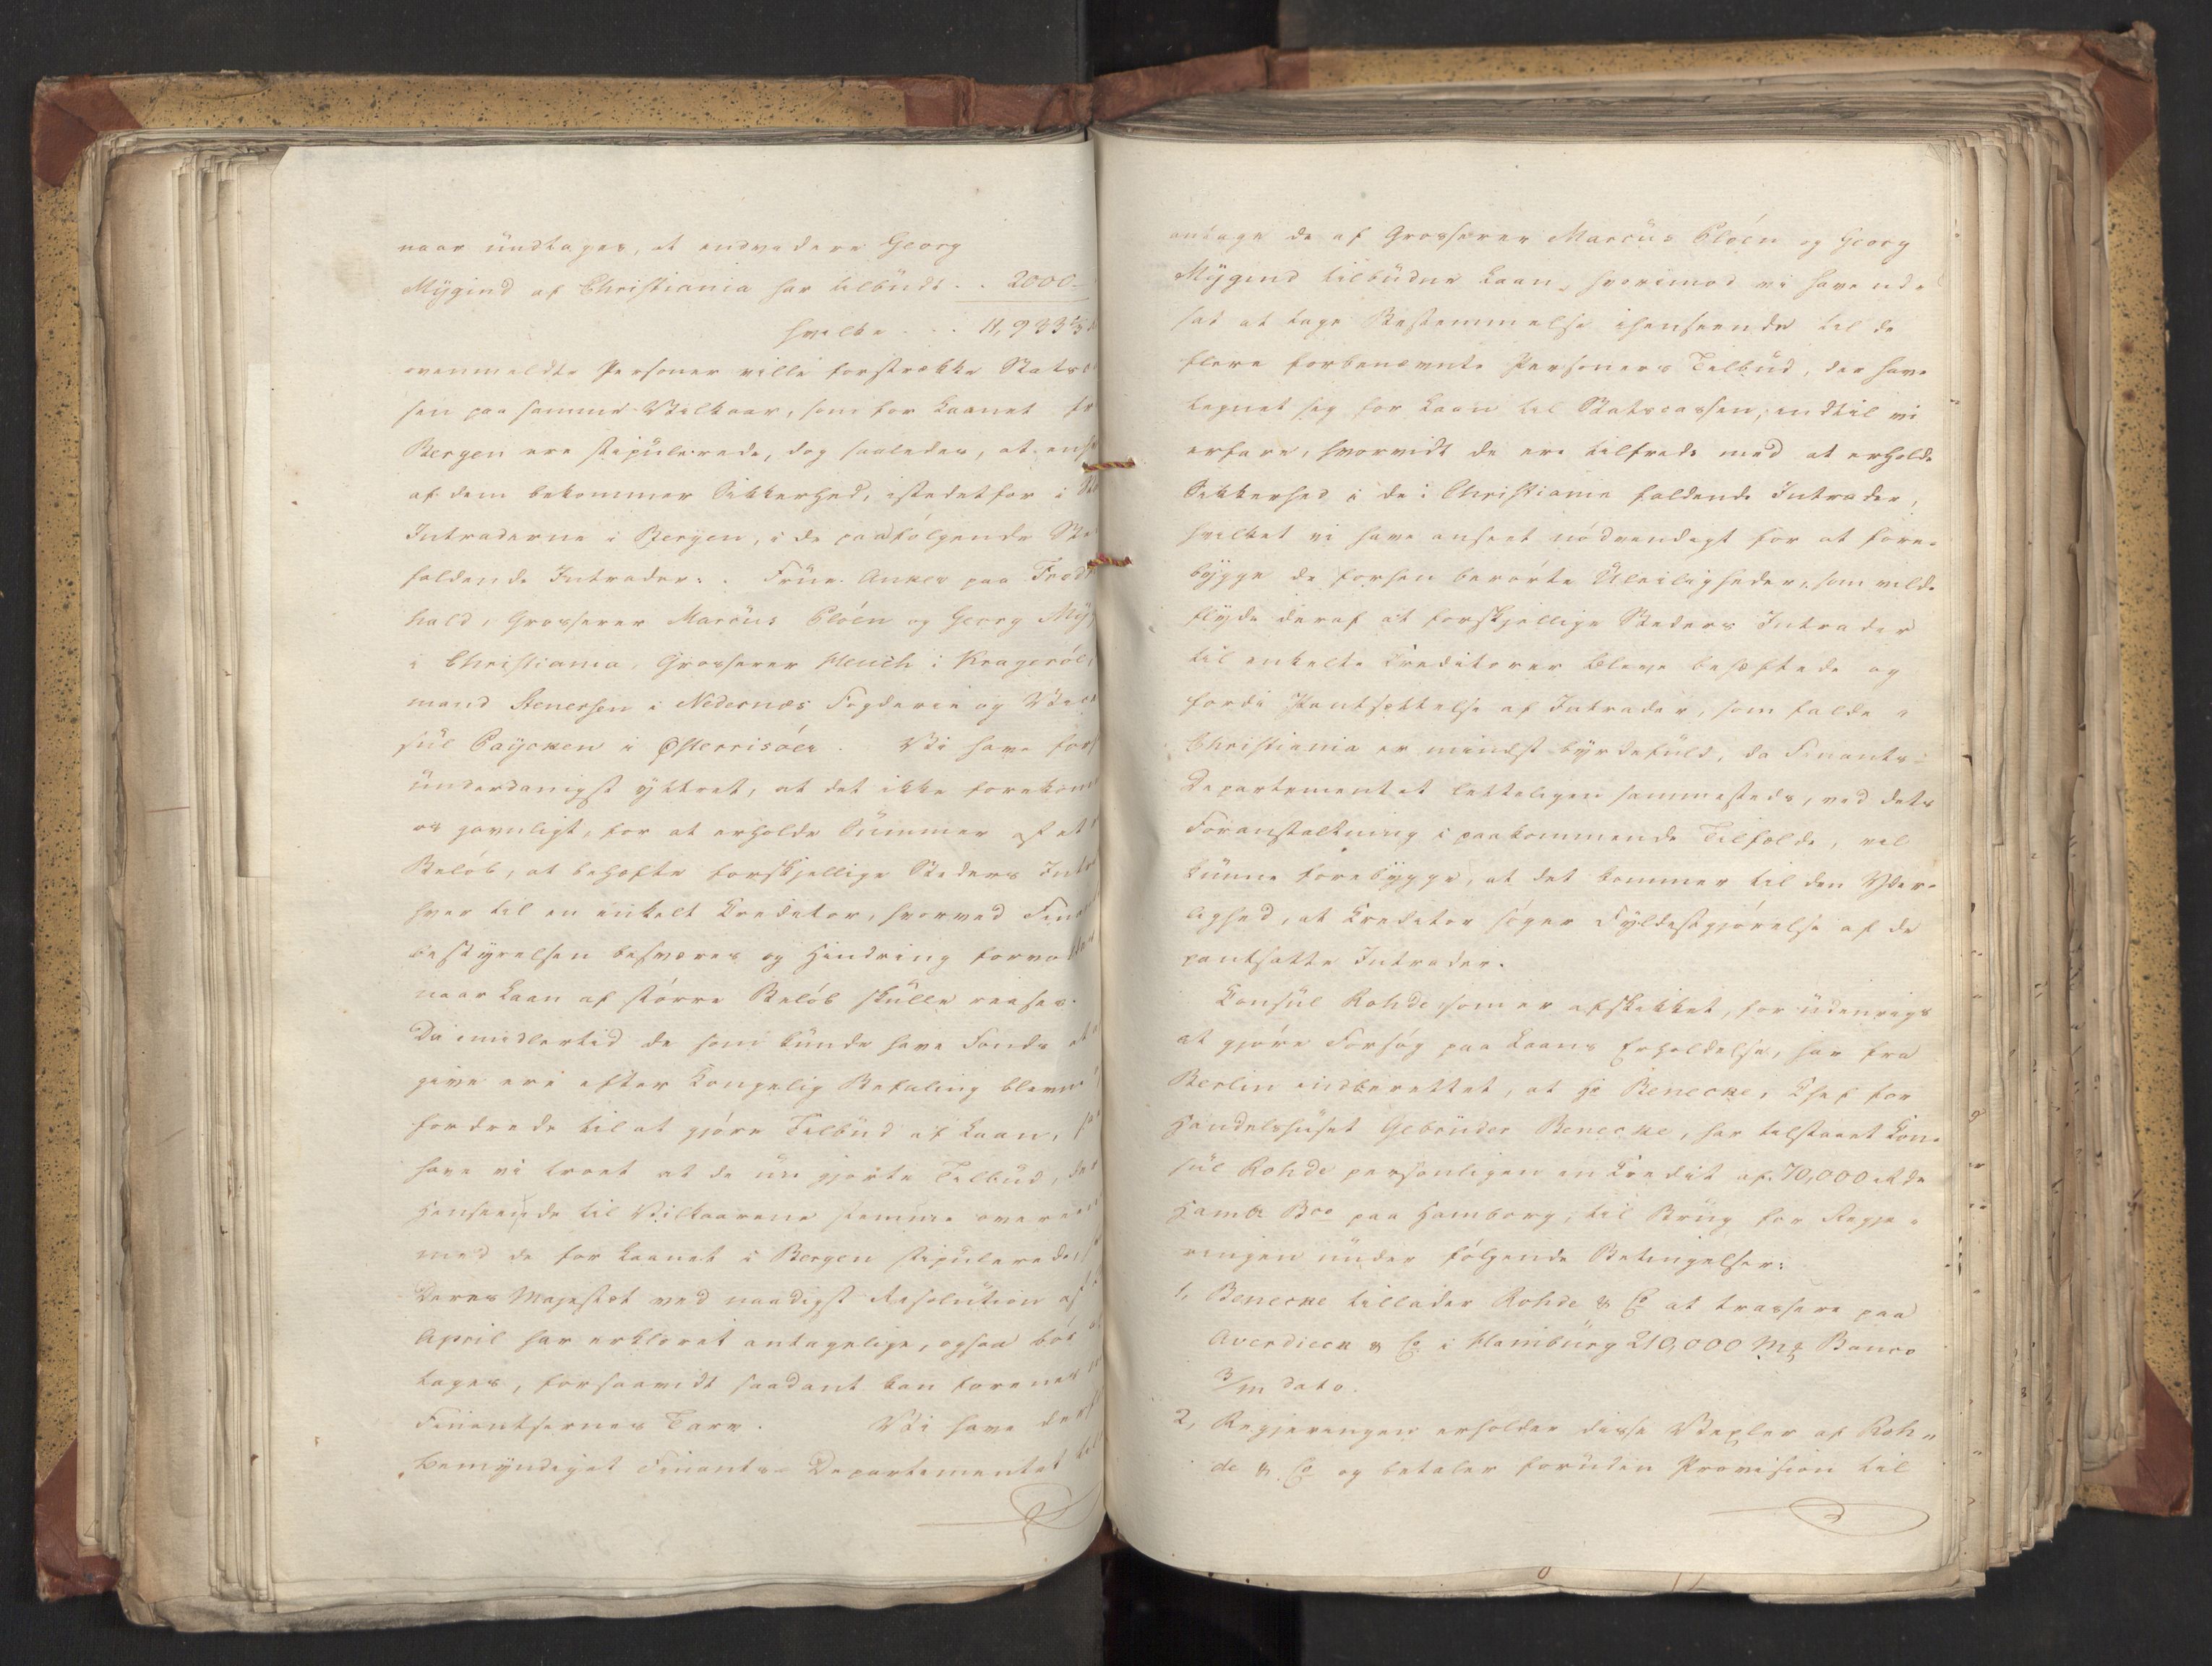 naar undtages, at endvidere Georg
Mygind af Christiania har tilbudt . . 2000
hvilke . . . 11,933⅓
ovenmeldte Personer ville forstrække Stats
sen paa samme Vilkaar, som for Laanet
Bergen ere stipulerede, dog saaledes, at
af dem bekommer Sikkerhed, istedetfor i
Intraderne i Bergen, i de paafølgende
faldende Intrader: Frue Anker paa Fred
hald, Grosserer Marcus Pløen og Georg My
i Christiania, Grosserer Heuch i Kragerö
mand Stenersen i Nedernæs Fogderie og Vice
sul Paycken i Østerrisöer. Vi have
underdanigst yttret, at det ikke forekom
os gavnligt, for at erholde Summer af et
Beløb, at behæfte forskjellige Steders
hver til en enkelt Creditor, hvorved
bestyrelsen besværes og Hindring
naar Laan af større Beløb skulle reises.
Da imidlertid de som kunde have Fonds at
give ere efter Kongelig Befaling blevne
fordrede til at gjøre Tilbud af Laan,
have vi troet at de nu gjorte Tilbud,
Henseende til Vilkaarene stemme
med de for Laanet i Bergen stipulerede,
Deres Majestæt ved naadigst Resolution af
April har erklæret antagelige, ogsaa bör
tages, forsaavidt saadant kan forenes
Finantsernes Tarv. Vi have
bemyndiget Finants-Departementet
antage de af Grosserer Marcus Pløen og Georg
Mygind tilbudne Laan, hvorimod vi have ud-
sat at tage Bestemmelse ihenseende til de
flere forbenævnte Personers Tilbud, der have
tegnet sig for Laan til Statscassen, indtil vi
erfare, hvorvidt de ere tilfreds med at erholde
Sikkerhed i de i Christiania faldende Intrader,
hvilket vi have anseet nødvendigt for at fore-
bygge de forhen berørte Uleiligheder, som vilde
flyde deraf at forskjellige Steders Intrader
til enkelte Creditorer bleve behæftede og
fordi Pantsættelse af Intrader, som falde i
Christiania er mindst byrdefuld, da Finants-
Departementet letteligen sammesteds, ved dets
Foranstaltning i paakommende Tilfælde, vil
kunne forebygge, at det kommer til den Yder-
lighed, at Creditor søger Fyldestgjørelse af de
pantsatte Intrader.
Consul Rohde som er afskikket, for udenrigs
at gjøre Forsøg paa Laans Erholdelse, har fra
Berlin indberettet, at Hr Benecke, Chef for
Handelshuset Gebrüder Benecke, har tilstaaet Con-
sul Rohde personligen en Credit af 70,000 Rdr
Hamb. Bco paa Hamborg, til Brug for Regje-
ringen under følgende Betingelser:
1, Benecke tillader Rohde & Co at trassere paa
Averdieck & Co i Hamburg 210,000 Mk Banco
3/m dato.
2, Regjeringen erholder disse Vexler af Roh-
de & Co og betaler foruden Provision til